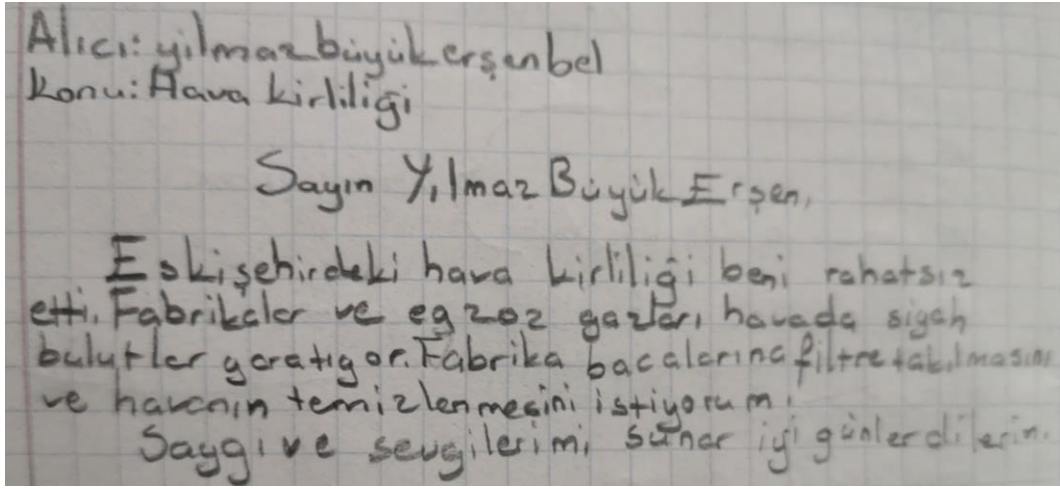 Alıcı: yılmazbüyükerşenbel
Konu: Hava kirliliği
Sayın Yılmaz Büyük Erşen,
Eskişehirdeki hava kirliliği beni rahatsız
etti. Fabrikalar ve egzoz gazları havada siyah
bulutlar yaratıyor. Fabrika bacalarına filtre takılmasını
ve havanın temizlenmesini istiyorum.
Saygı ve sevgilerimi sunar iyi günler dilerim.